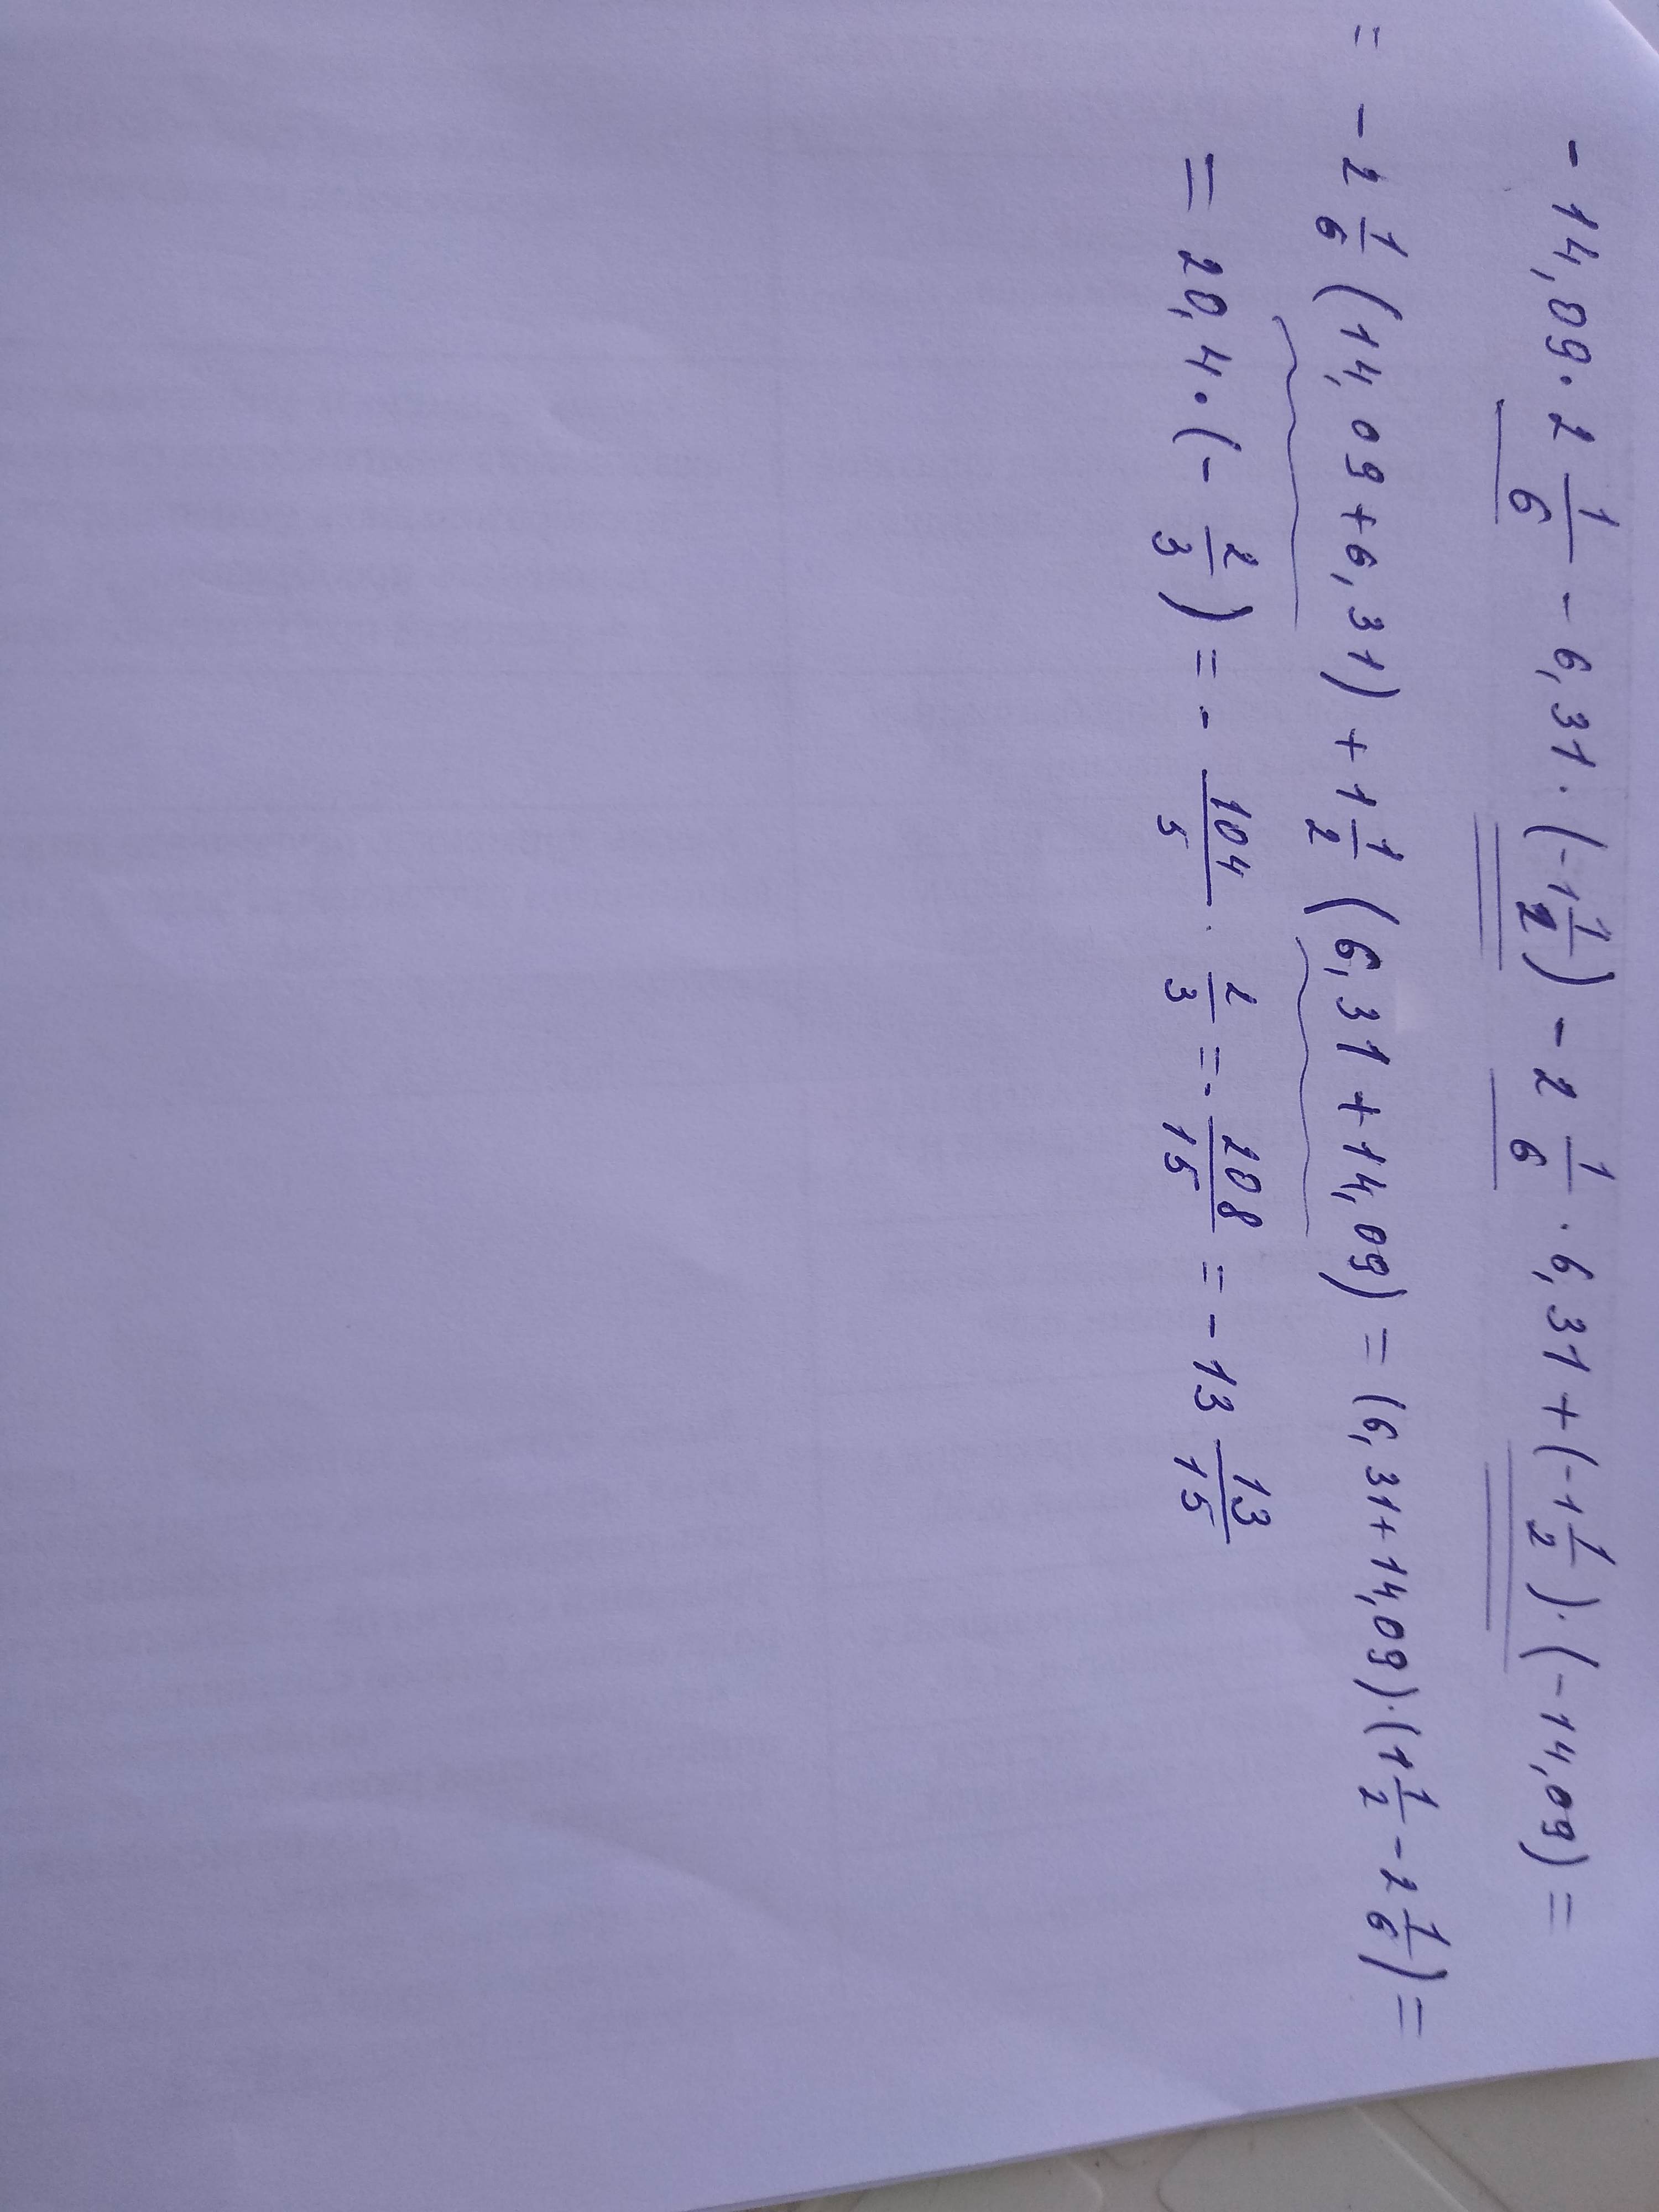 - 14,09 · 2 1/6 - 6,31 · (-1 1/2) - 2 1/6 · 6,31 + (-1 1/2) · (-14,09) =
= - 2 1/6 (14,09 + 6,31) + 1 1/2 (6,31 + 14,09) = (6,31 + 14,09) · (1 1/2 - 2 1/6) =
= 20,4 · (- 2/3) = - 104/5 · 2/3 = - 208/15 = - 13 13/15